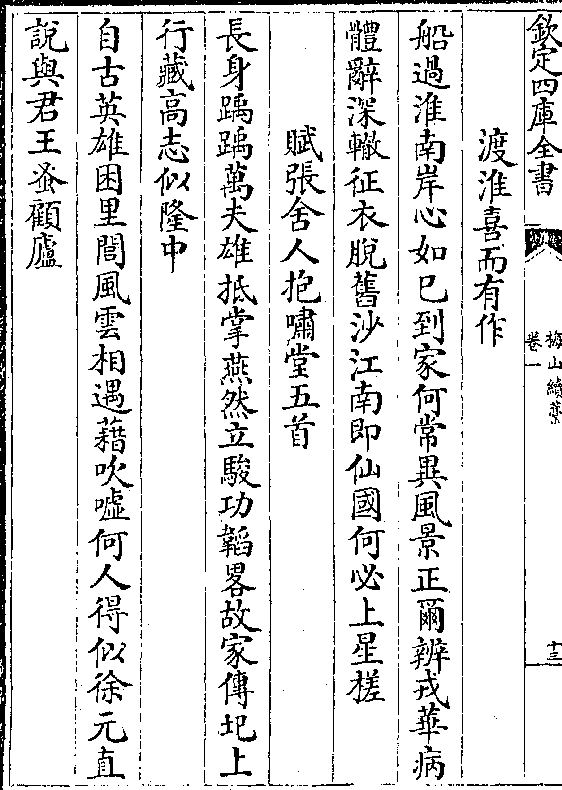 欽定四庫全書
梅山續藁
卷一
十三
渡淮喜而有作
船過淮南岸心如已到家何常異風景正爾辨戎華病
體辭深轍征衣脫舊沙江南即仙國何必上星槎
賦張舍人抱嘯堂五首
長身踽踽萬夫雄抵掌燕然立駿功韜畧故家傳圯上
行藏高志似隆中
自古英雄困里閭風雲相遇藉吹噓何人得似徐元直
說與君王蚤顧廬